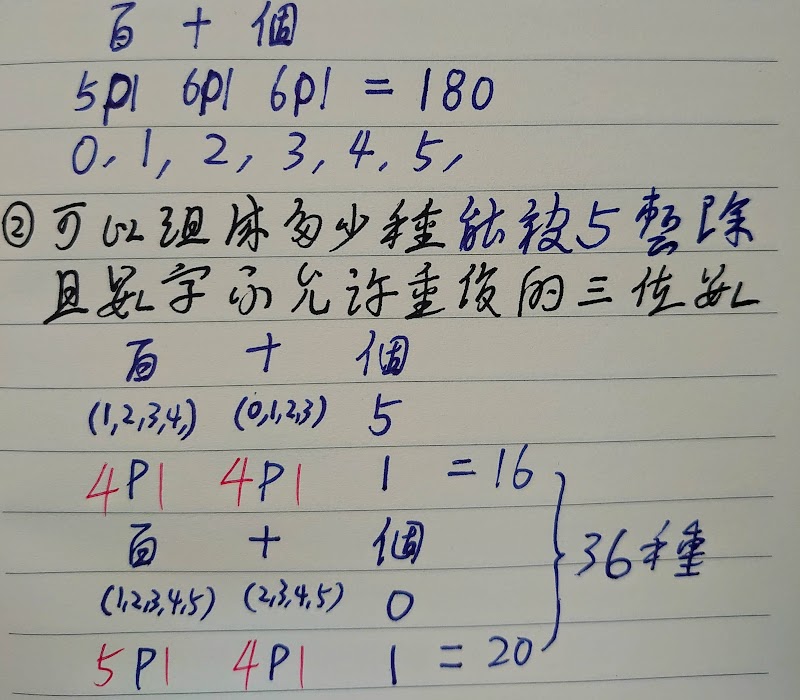 百 十 個
5P1 6P1 6P1 = 180
0, 1, 2, 3, 4, 5,
②可以組成多少種能被5整除
且數字不允許重復的三位數
百 十 個
(1,2,3,4,) (0,1,2,3) 5
4P1 4P1 1 = 16
百 十 個
36種
(1,2,3,4,5) (2,3,4,5) 0
5P1 4P1 1 = 20